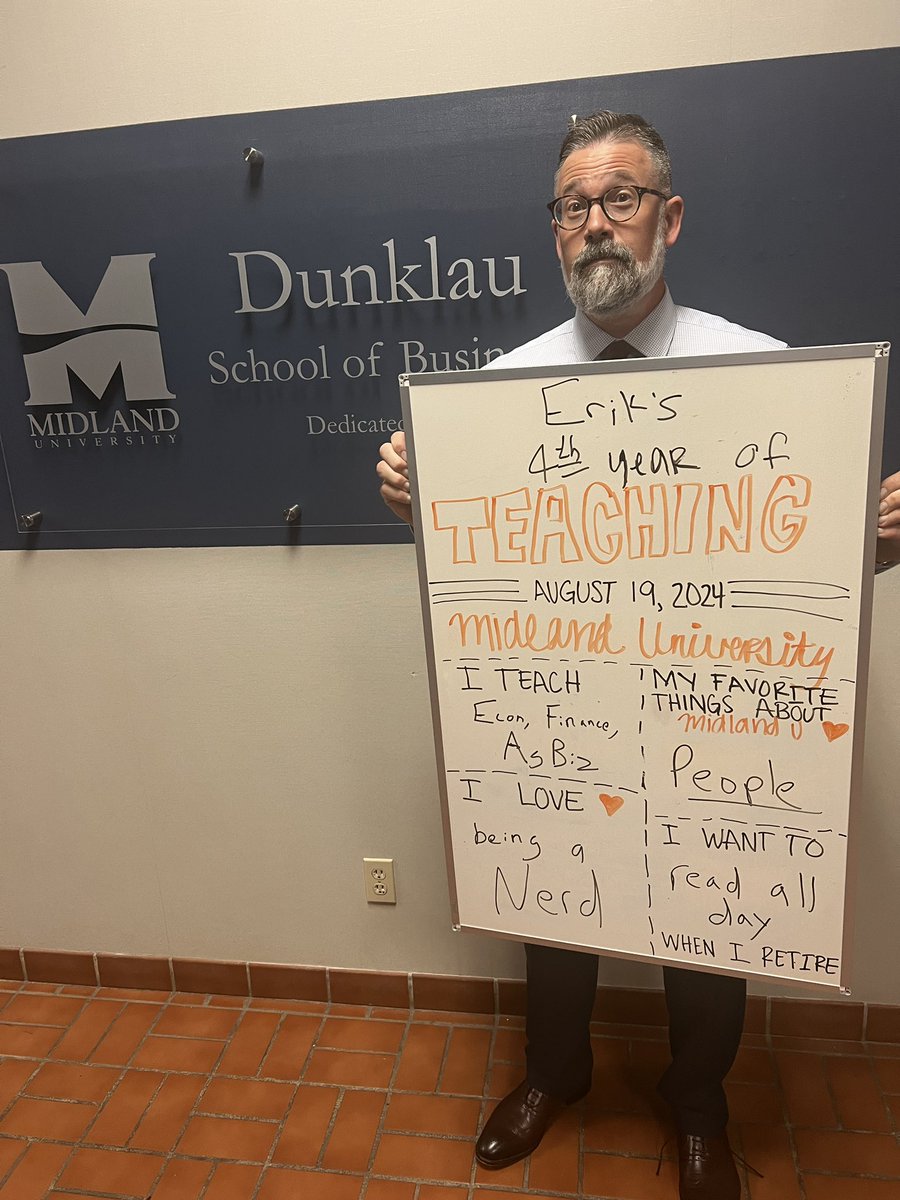 MIDLAND
UNIVERSITY
Dunklau
School of Busin
Dedicated
Erik's
4th year of
TEACHING
AUGUST 19, 2024
Midland University
I TEACH
Econ, Finance,
AgBiz
MY FAVORITE
THINGS ABOUT
Midland U
People
I LOVE
being a
Nerd
I WANT TO
read all
day
WHEN I RETIRE